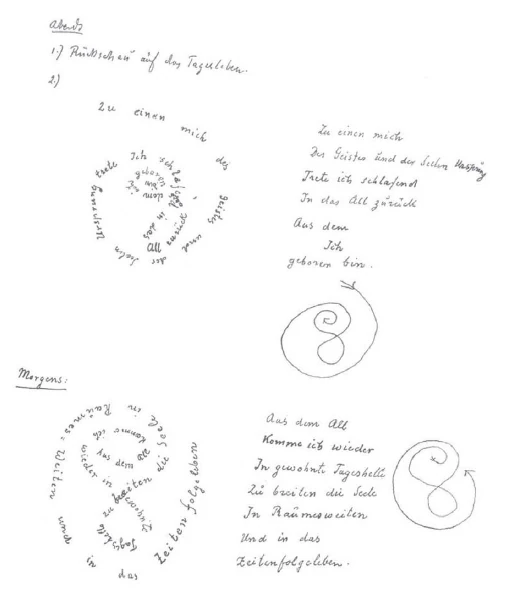 Abends
1.) Rückschau auf das Tagesleben.
2.)
Zu einen mich des Geistes und der Seelen Ursprung trete Ich schlafend zurück in das All aus dem Ich geboren bin
Zu einen mich
Des Geistes und der Seelen Ursprung
Trete ich schlafend
In das All zurück
Aus dem
Ich
geboren bin.
Morgens:
Aus dem All komme ich wieder in gewohnte Tageshelle zu breiten die Seele in Raumes-Weiten und in das Zeitenfolgeleben
Aus dem All
Komme ich wieder
In gewohnte Tageshelle
Zu breiten die Seele
In Raumesweiten
Und in das
Zeitenfolgeleben.